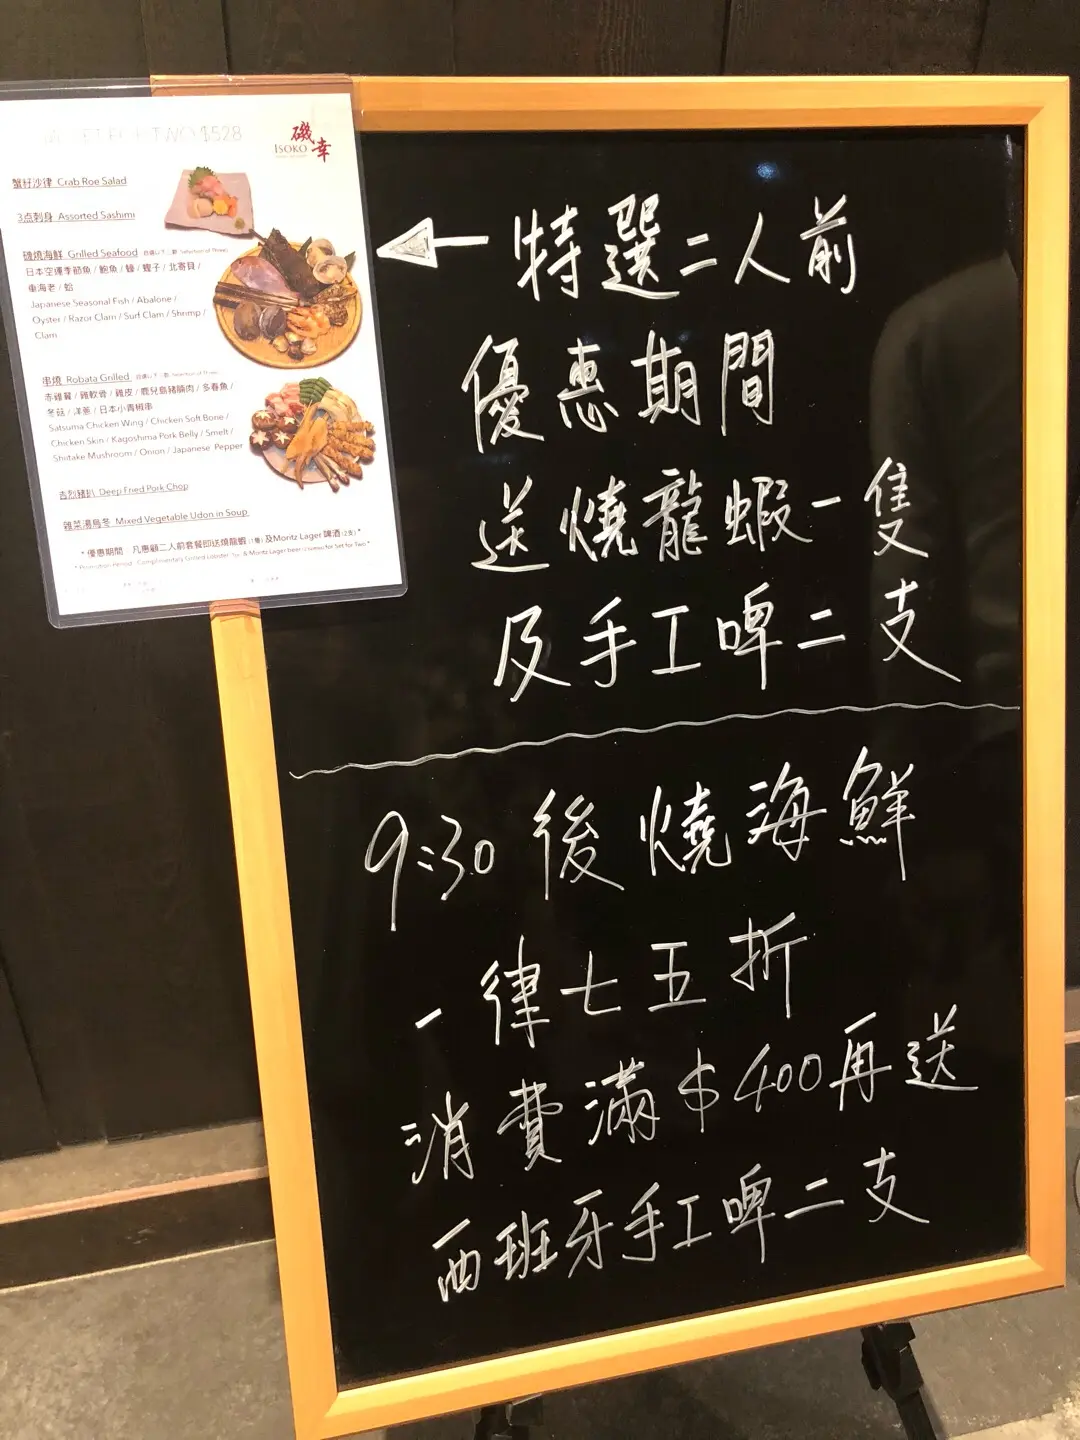 TWO $528
磯幸
ISOKO
蟹籽沙律 Crab Roe Salad
3点刺身 Assorted Sashimi
磯燒海鮮 Grilled Seafood
日本空運季節魚 / 鮑魚 / 蠔 / 蟶子 / 北寄貝 /
東海老 / 蛤
Japanese Seasonal Fish / Abalone /
Oyster / Razor Clam / Surf Clam / Shrimp /
Clam
串燒 Robata Grilled
赤雞翼 / 雞軟骨 / 雞皮 / 鹿兒島豬腩肉 / 多春魚 /
冬菇 / 洋蔥 / 日本小青椒串
Satsuma Chicken Wing / Chicken Soft Bone /
Chicken Skin / Kagoshima Pork Belly / Smelt /
Shiitake Mushroom / Onion / Japanese Pepper
吉烈豬扒 Deep Fried Pork Chop
雜菜湯烏冬 Mixed Vegetable Udon in Soup
* 優惠期間 凡惠顧二人前套餐即送燒龍蝦 (1隻) 及Moritz Lager 啤酒 (2支) *
特選二人前
優惠期間
送燒龍蝦一隻
及手工啤二支
9:30後燒海鮮
一律七五折
消費滿$400再送
西班牙手工啤二支